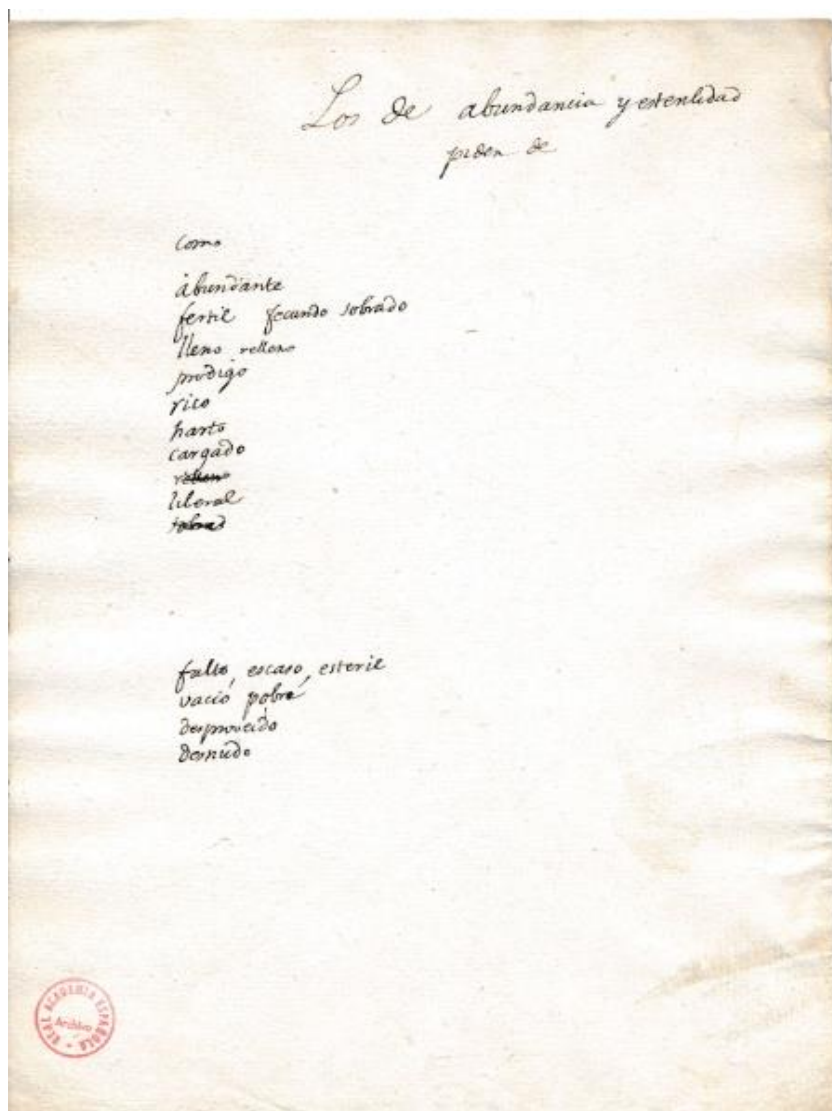 Los de abundancia y esterilidad
piden de
como
abundante
fertil fecundo sobrado
lleno relleno
prodigo
rico
harto
cargado
relleno
liberal
sobrad
falto, escaso, esteril
vacio pobre
desproveido
desnudo
REAL ACADEMIA ESPAÑOLA
Archivo